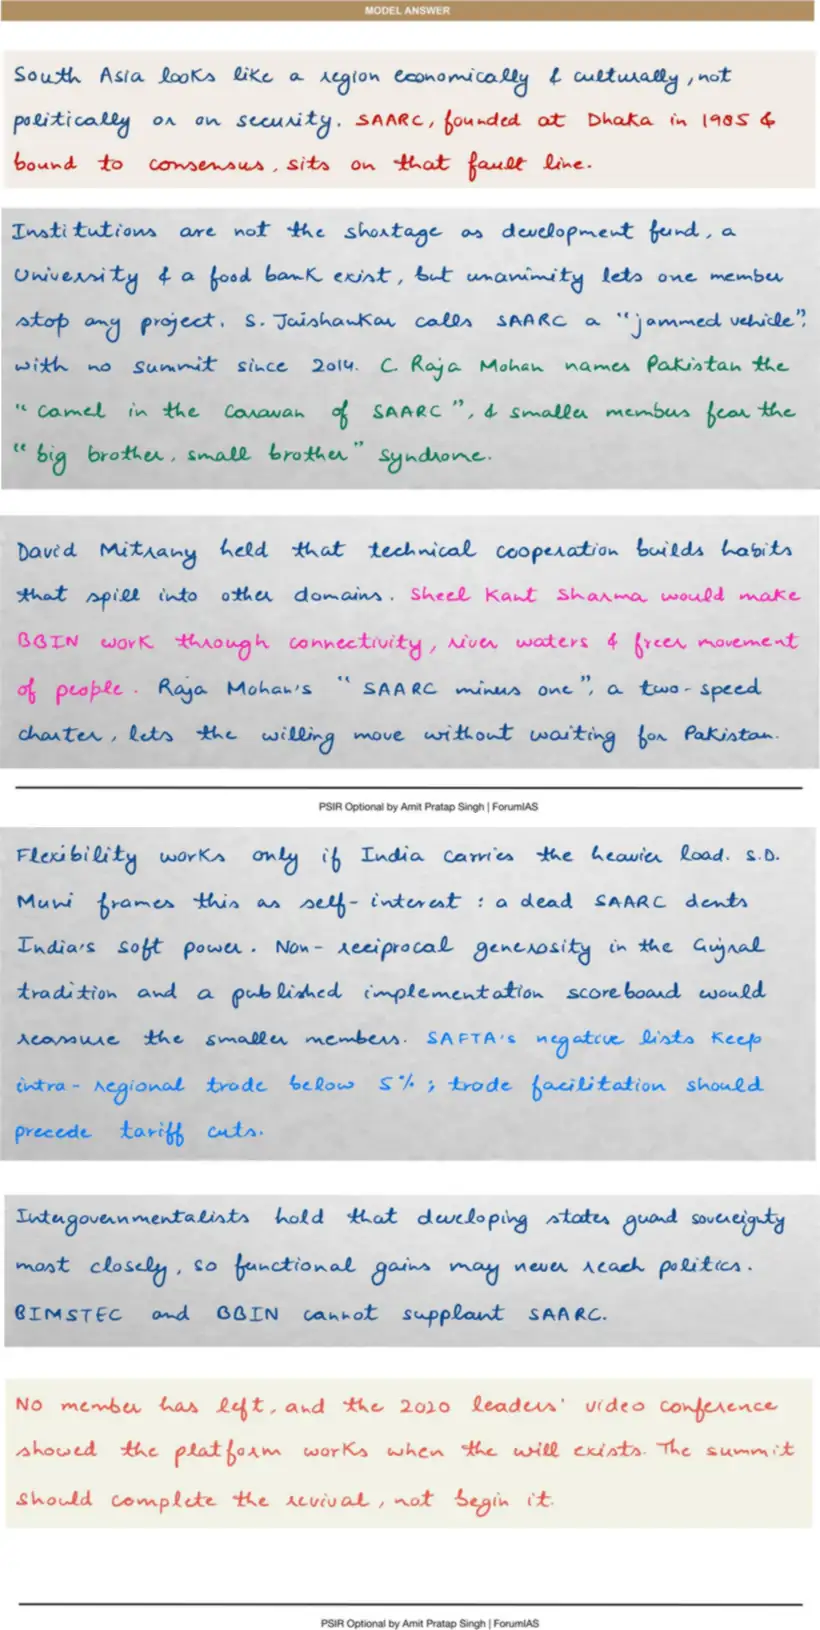 MODEL ANSWER
South Asia looks like a region economically & culturally, not
politically or on security. SAARC, founded at Dhaka in 1985 &
bound to consensus, sits on that fault line.
Institutions are not the shortage as development fund, a
University & a food bank exist, but unanimity lets one member
stop any project. S. Jaishankar calls SAARC a "jammed vehicle",
with no summit since 2014. C. Raja Mohan names Pakistan the
"camel in the caravan of SAARC", & smaller members fear the
"big brother, small brother" syndrome.
David Mitrany held that technical cooperation builds habits
that spill into other domains. Sheel Kant Sharma would make
BBIN work through connectivity, river waters & freer movement
of people. Raja Mohan's "SAARC minus one", a two-speed
charter, lets the willing move without waiting for Pakistan.
PSIR Optional by Amit Pratap Singh | ForumIAS
Flexibility works only if India carries the heavier load. S.D.
Muni frames this as self-interest : a dead SAARC dents
India's soft power. Non-reciprocal generosity in the Gujral
tradition and a published implementation scoreboard would
reassure the smaller members. SAFTA's negative lists keep
intra-regional trade below 5% ; trade facilitation should
precede tariff cuts.
Intergovernmentalists hold that developing states guard sovereignty
most closely, so functional gains may never reach politics.
BIMSTEC and BBIN cannot supplant SAARC.
No member has left, and the 2020 leaders' video conference
showed the platform works when the will exists. The summit
should complete the revival, not begin it.
PSIR Optional by Amit Pratap Singh | ForumIAS